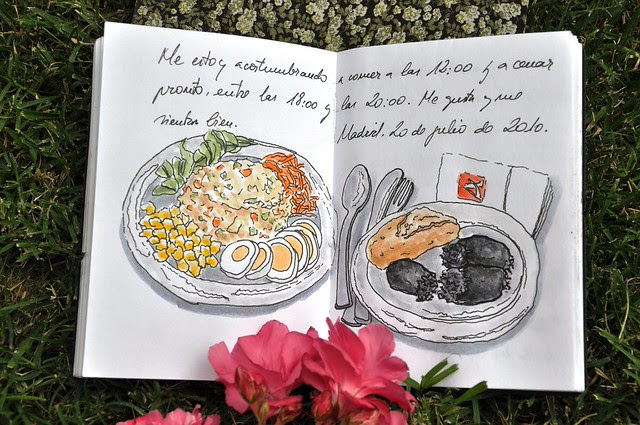 Me estoy acostumbrando a comer a las 12:00 y a cenar
pronto, entre las 18:00 y las 20:00. Me gusta y me
sienta bien. Madrid. 20 de julio de 2010.